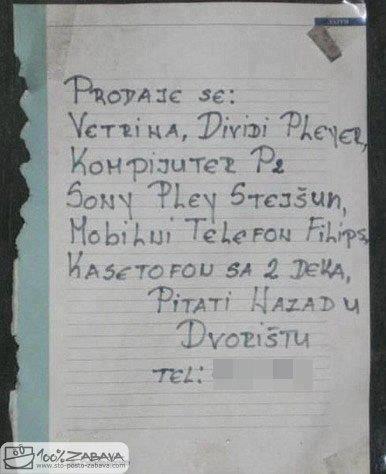 PRODAJE SE:
VETRINA, DIVIDI PLEYER,
KOMPIJUTER P2
SONY PLEY STEJŠUN,
MOBILNI TELEFON FILIPS,
KASETOFON SA 2 DEKA,
PITATI NAZAD U
DVORIŠTU
TEL:
100% ZABAVA
www.sto-posto-zabava.com